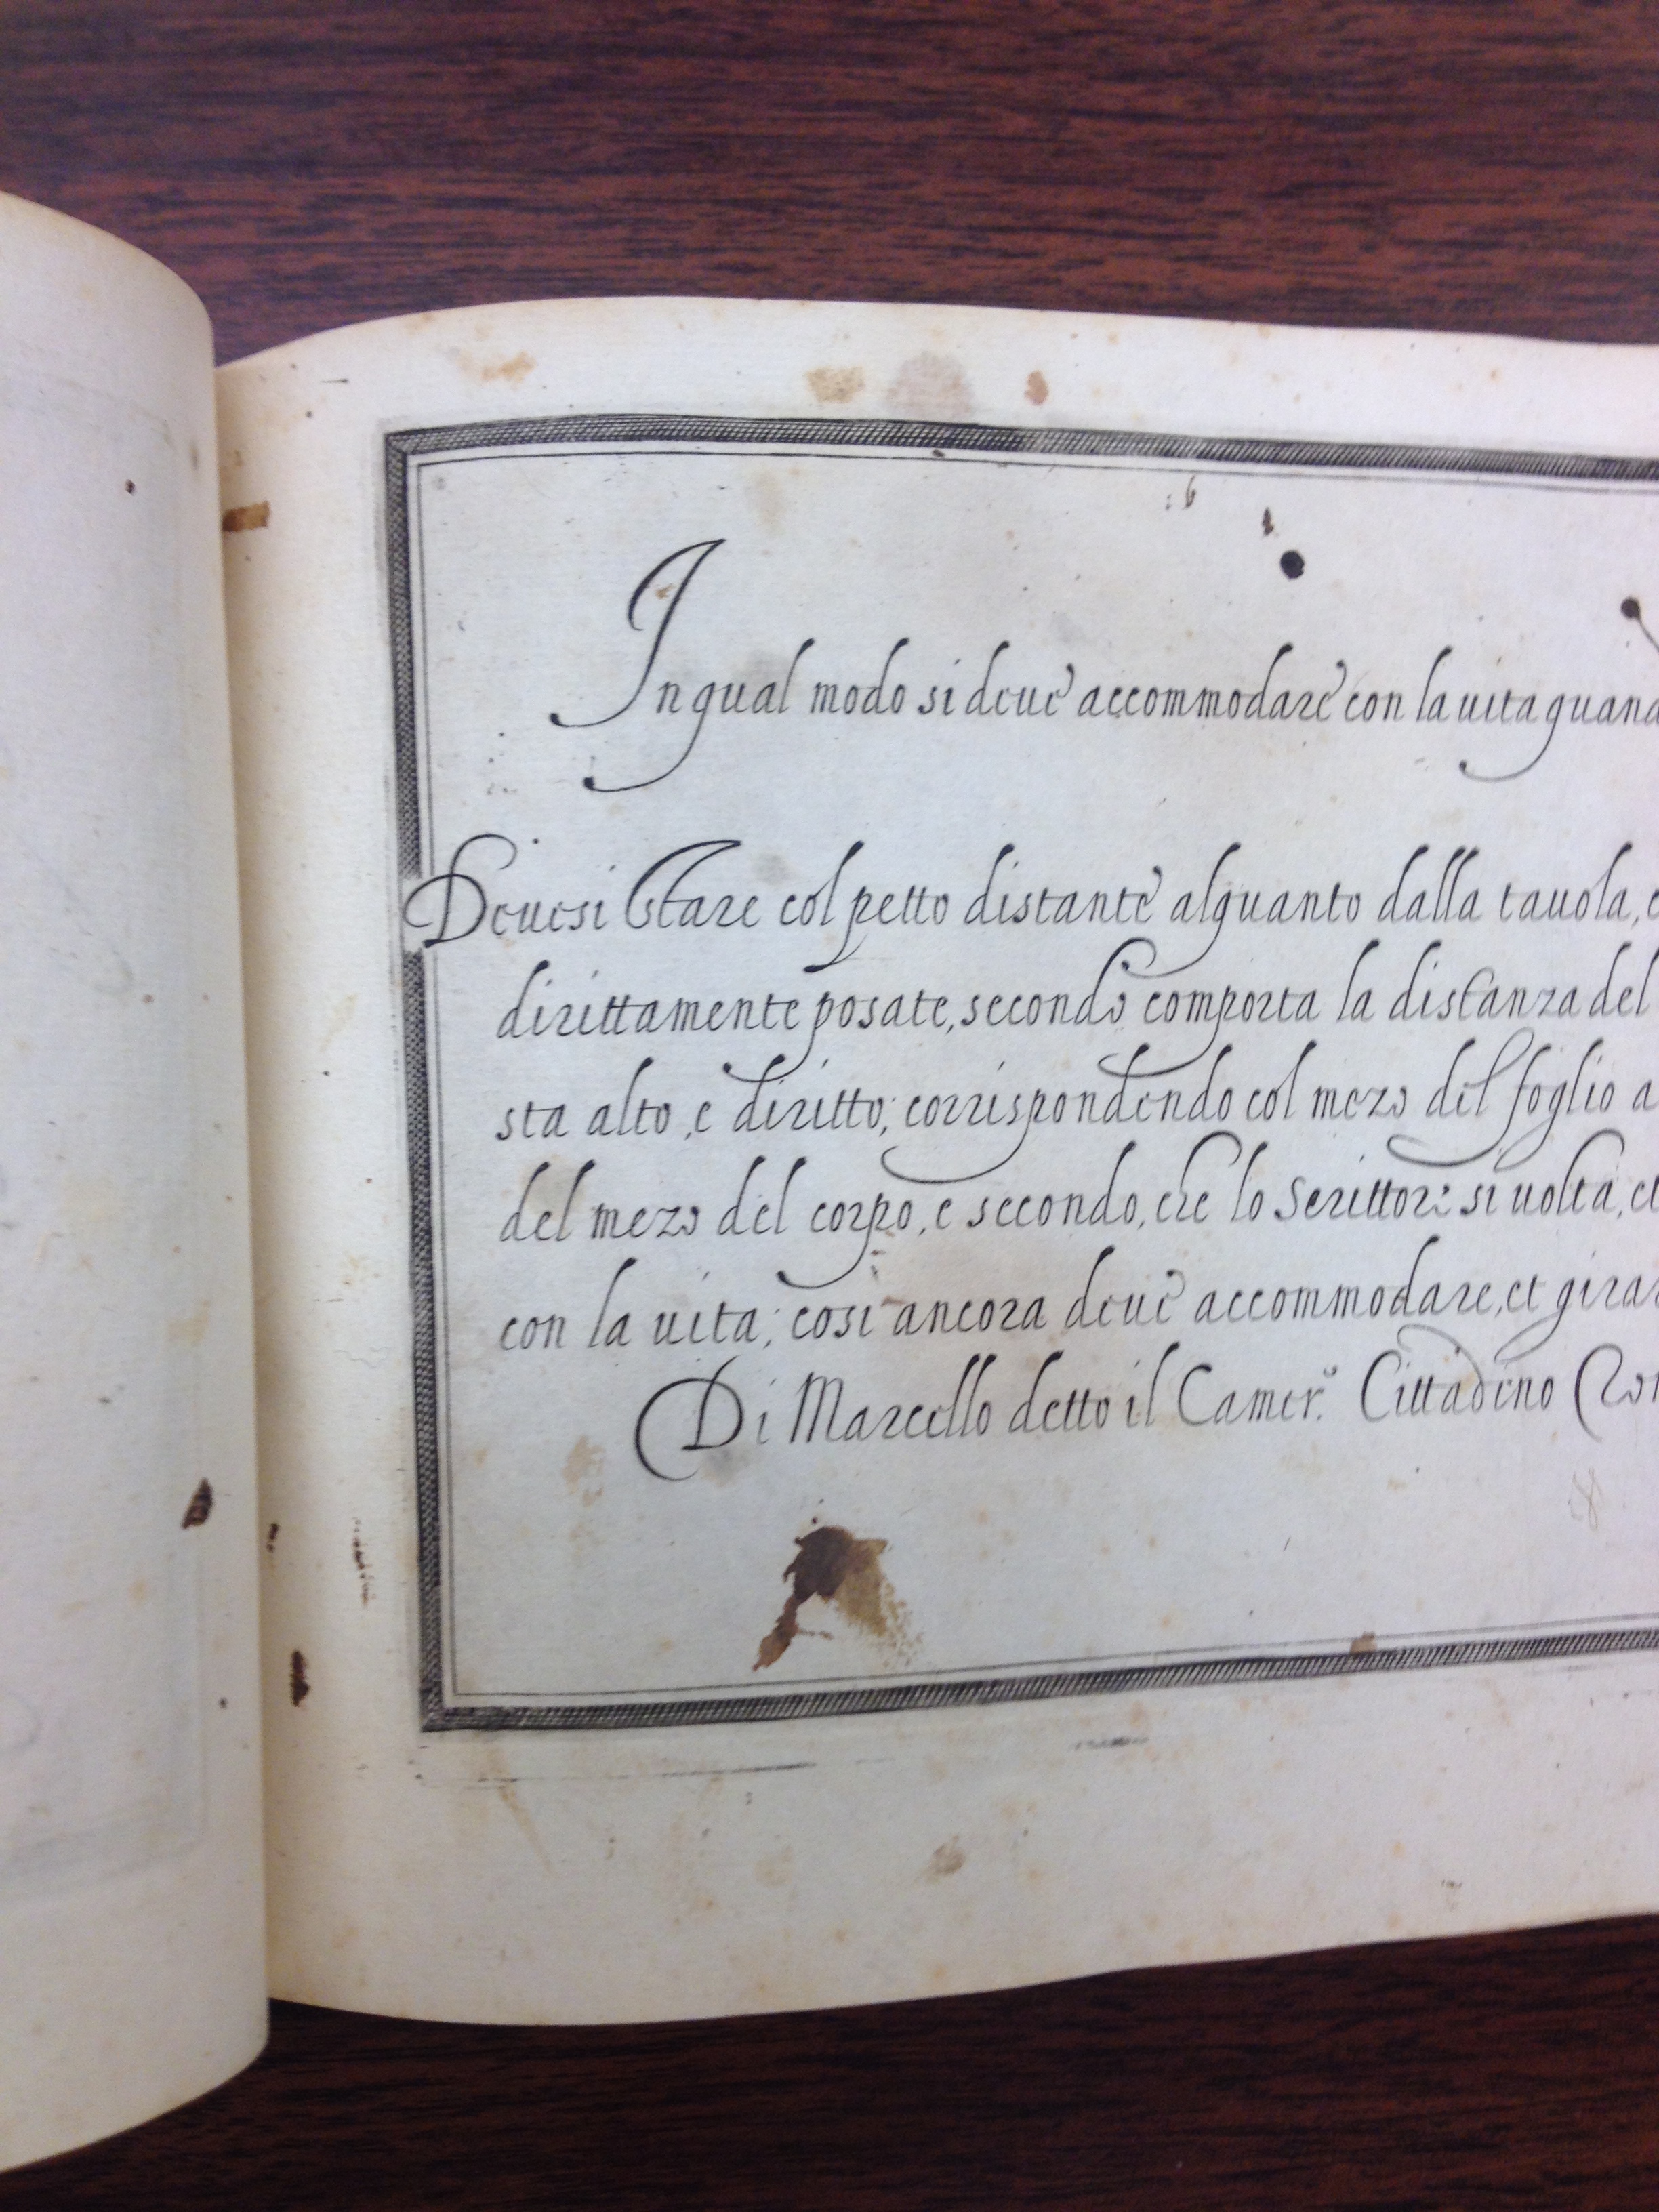 In qual modo si deue accommodare con la uita quand
Deuesi Stare col petto distante alquanto dalla tauola, e
dirittamente posate, secondo comporta la distanza del
sta alto, e diritto; corrispondendo col mezo del foglio a
del mezo del corpo, e secondo, che lo Scrittore si uolta, et
con la uita; cosi ancora deue accommodare, et girar
Di Marcello detto il Camer.o Cittadino Rom